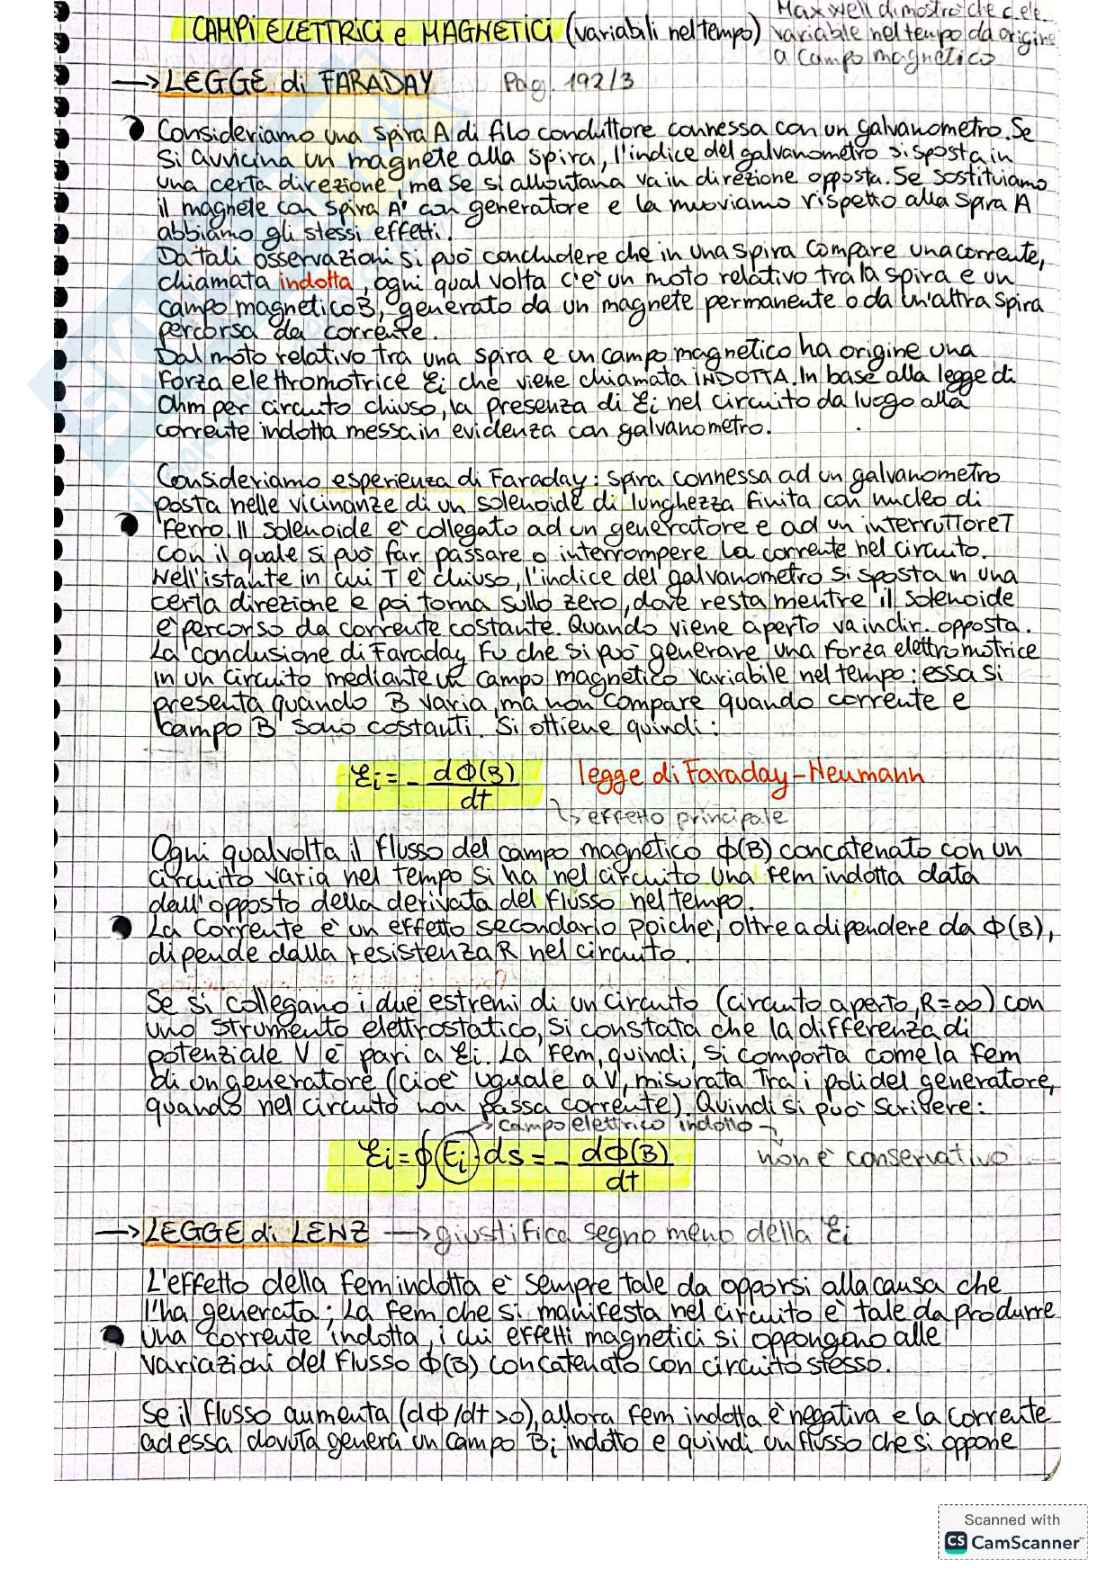 CAMPI ELETTRICI e MAGNETICI (variabili nel tempo)
Maxwell dimostrò che c.ele.
variabile nel tempo da origine
a campo magnetico
→ LEGGE di FARADAY Pag. 192/3
Consideriamo una spira A di filo conduttore connessa con un galvanometro. Se
si avvicina un magnete alla spira, l'indice del galvanometro si sposta in
una certa direzione, ma se si allontana va in direzione opposta. Se sostituiamo
il magnete con spira A' con generatore e la muoviamo rispetto alla spira A
abbiamo gli stessi effetti.
Da tali osservazioni si può concludere che in una spira compare una corrente,
chiamata indotta, ogni qual volta c'è un moto relativo tra la spira e un
campo magnetico B, generato da un magnete permanente o da un'altra spira
percorsa da corrente.
Dal moto relativo tra una spira e un campo magnetico ha origine una
forza elettromotrice Ei che viene chiamata INDOTTA. In base alla legge di
Ohm per circuito chiuso, la presenza di Ei nel circuito da luogo alla
corrente indotta messa in evidenza con galvanometro.
Consideriamo esperienza di Faraday: spira connessa ad un galvanometro
posta nelle vicinanze di un solenoide di lunghezza finita con nucleo di
ferro. Il solenoide è collegato ad un generatore e ad un interruttore T
con il quale si può far passare o interrompere la corrente nel circuito.
Nell'istante in cui T è chiuso, l'indice del galvanometro si sposta in una
certa direzione e poi torna sullo zero, dove resta mentre il solenoide
è percorso da corrente costante. Quando viene aperto va in dir. opposta.
La conclusione di Faraday fu che si può generare una forza elettromotrice
in un circuito mediante un campo magnetico variabile nel tempo: essa si
presenta quando B varia, ma non compare quando corrente e
campo B sono costanti. Si ottiene quindi:
Ei = - dΦ(B)/dt legge di Faraday-Neumann
↳ effetto principale
Ogni qualvolta il flusso del campo magnetico Φ(B) concatenato con un
circuito varia nel tempo si ha nel circuito una fem indotta data
dall'opposto della derivata del flusso nel tempo.
La corrente è un effetto secondario poiché, oltre a dipendere da Φ(B),
dipende dalla resistenza R nel circuito.
Se si collegano i due estremi di un circuito (circuito aperto, R=∞) con
uno strumento elettrostatico, si constata che la differenza di
potenziale V è pari a Ei. La fem, quindi, si comporta come la fem
di un generatore (cioè uguale a V, misurata tra i poli del generatore,
quando nel circuito non passa corrente). Quindi si può scrivere:
→ campo elettrico indotto →
Ei = ∮ Ei · ds = - dΦ(B)/dt non è conservativo
→ LEGGE di LENZ → giustifica segno meno della Ei
L'effetto della fem indotta è sempre tale da opporsi alla causa che
l'ha generata; la fem che si manifesta nel circuito è tale da produrre
una corrente indotta, i cui effetti magnetici si oppongono alle
variazioni del flusso Φ(B) concatenato con circuito stesso.
Se il flusso aumenta (dΦ/dt >0), allora fem indotta è negativa e la corrente
ad essa dovuta genera un campo Bi indotto e quindi un flusso che si oppone
Scanned with
CS CamScanner